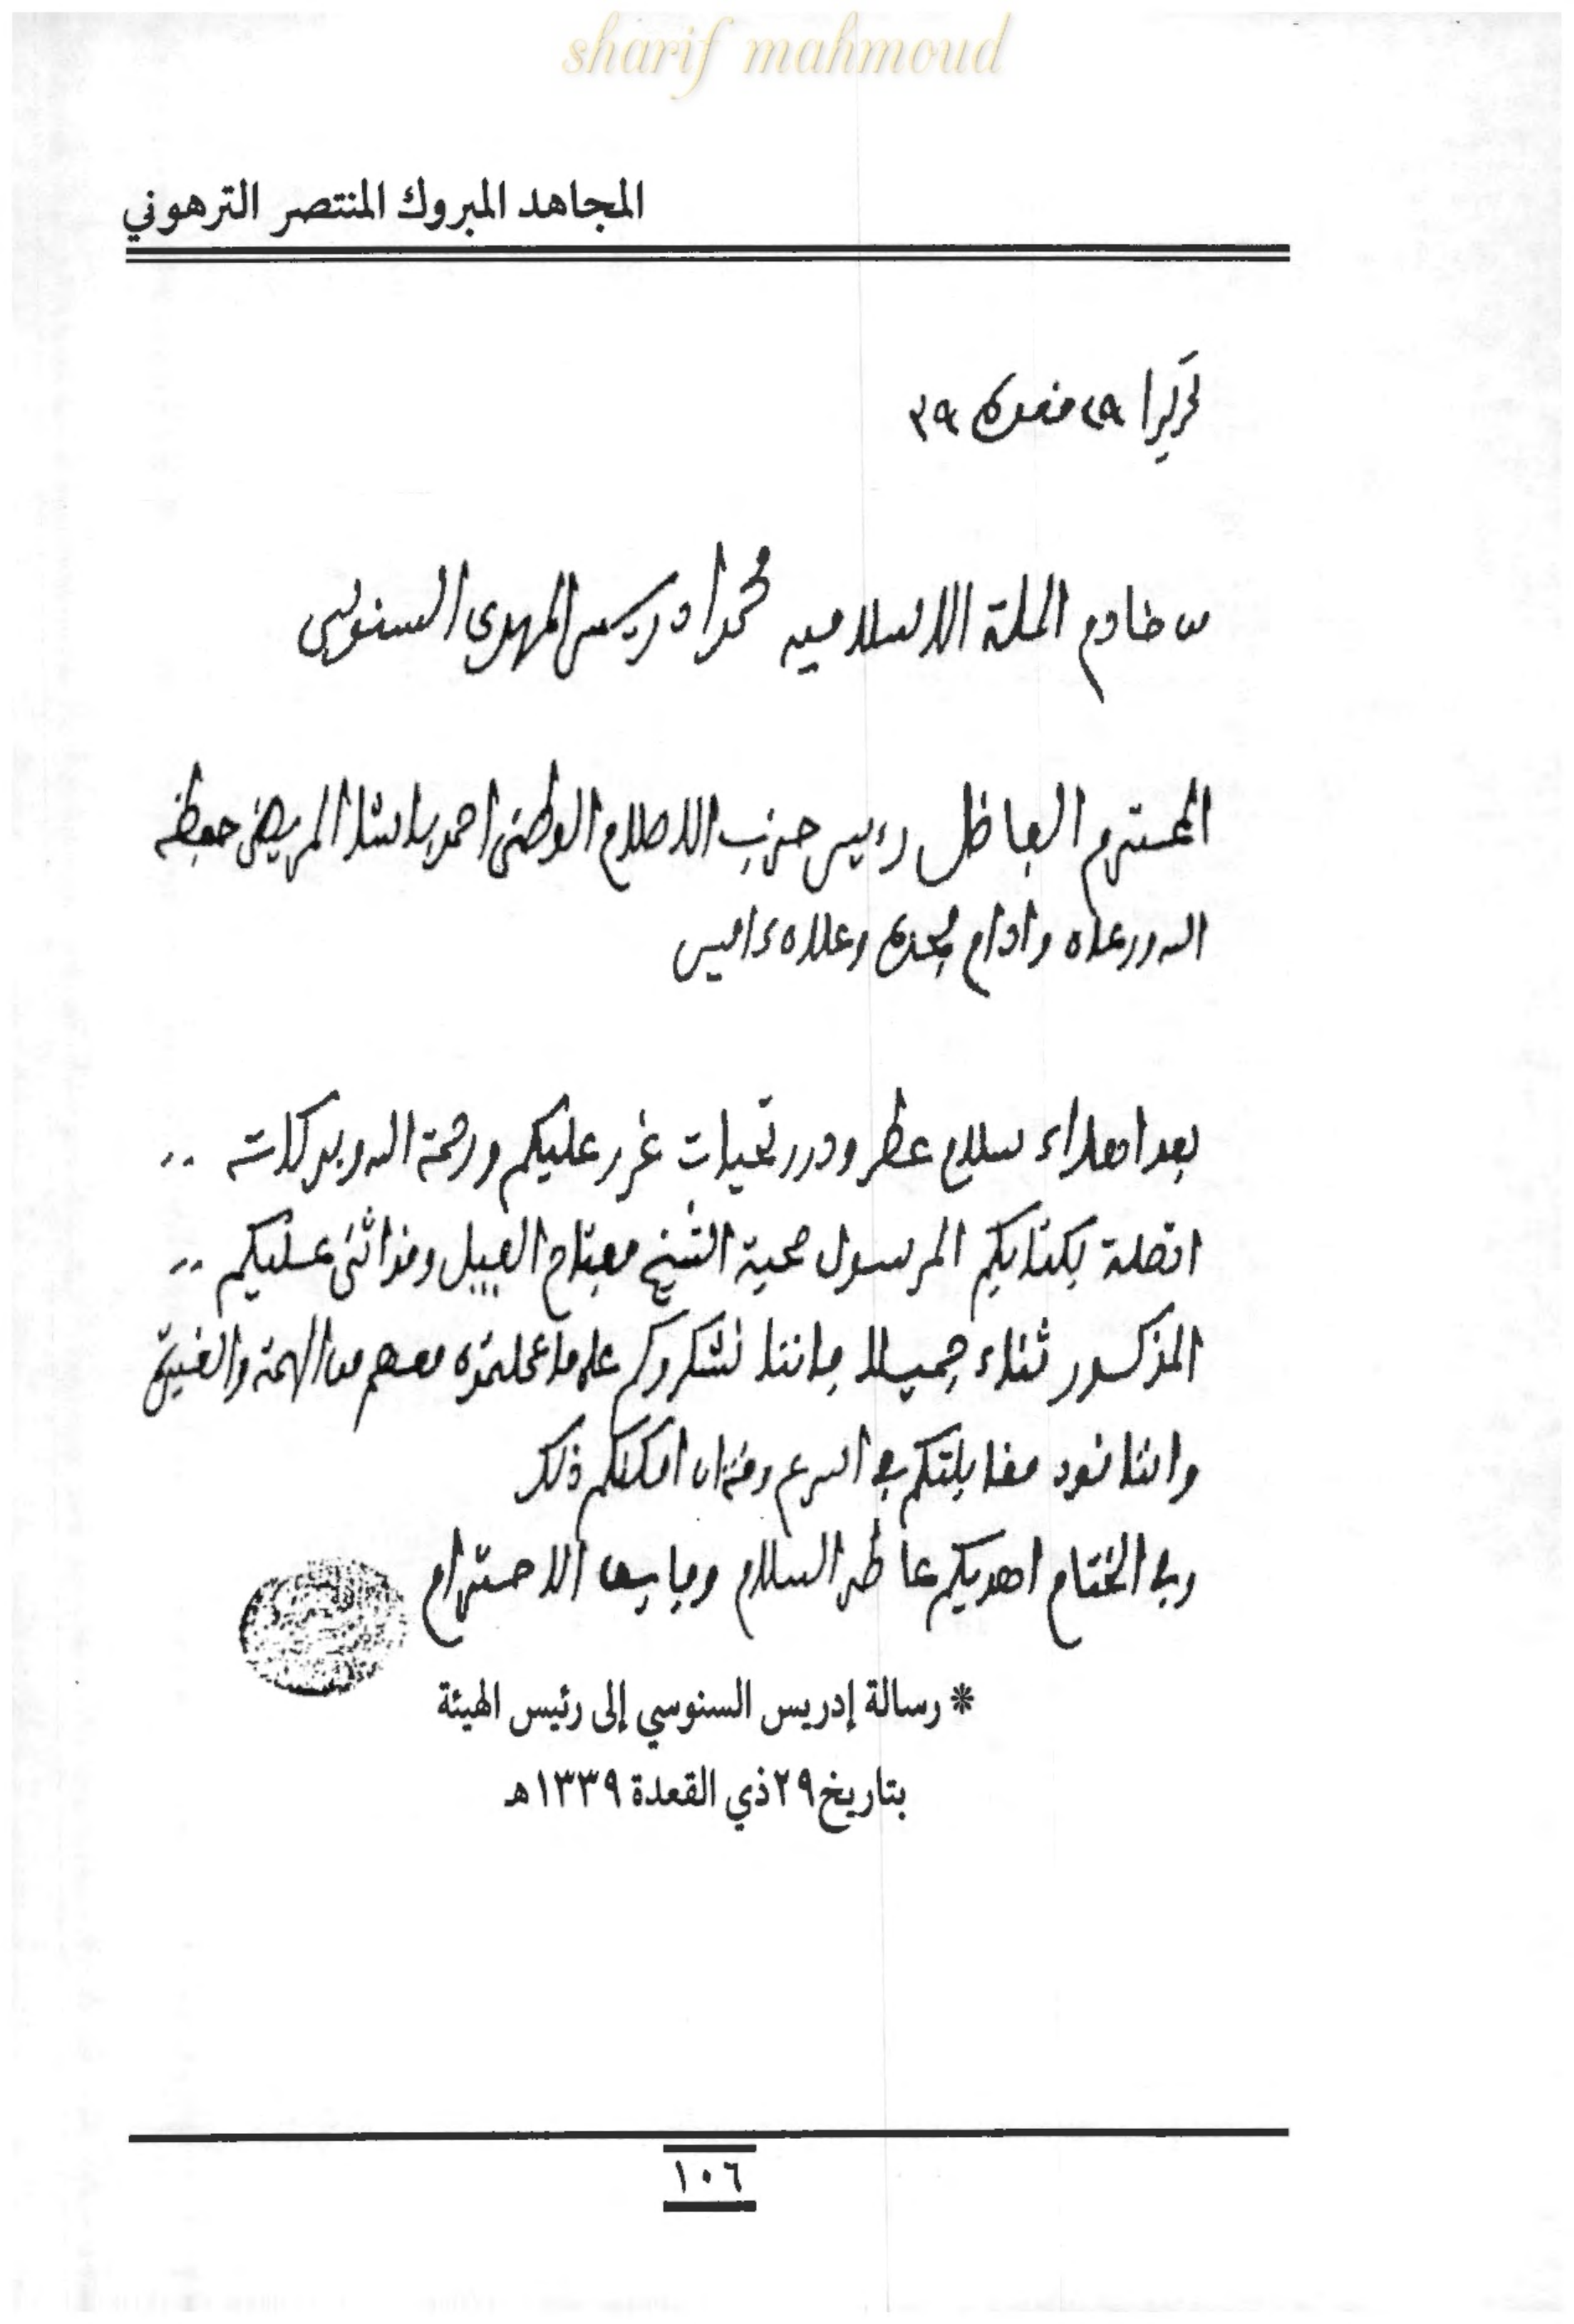 sharif mahmoud
المجاهد المبروك المنتصر الترهوني
تحريرا ٢٩ قعدة ٣٩
من خادم الملة الاسلاميه محمد ادريس المهدى السنوسى
المحترم الفاظل رءيس حزب الاصلاح الوطنى احمد باشا المريض حفظه
الله ورعاه وادام مجده وعلاه ءاميس
بعد اهداء سلام عطر ودرر تحيات غرر عليكم ورحمة الله وبركاته ..
اتصلة بكتابكم المرسول صحبة الشيخ مفتاح القبيل وقد اثنى عليكم ..
المذكور ثناء جميلا فاننا نشكروكم على ما عملتموه معهم من الهمة والغيرة
واننا نود مقابلتكم في اسرع وقت ان امكنكم ذلك
وفي الختام اهديكم عاطر السلام وفايق الاحترام
* رسالة إدريس السنوسي إلى رئيس الهيئة
بتاريخ ٢٩ ذي القعدة ١٣٣٩هـ
١٠٦